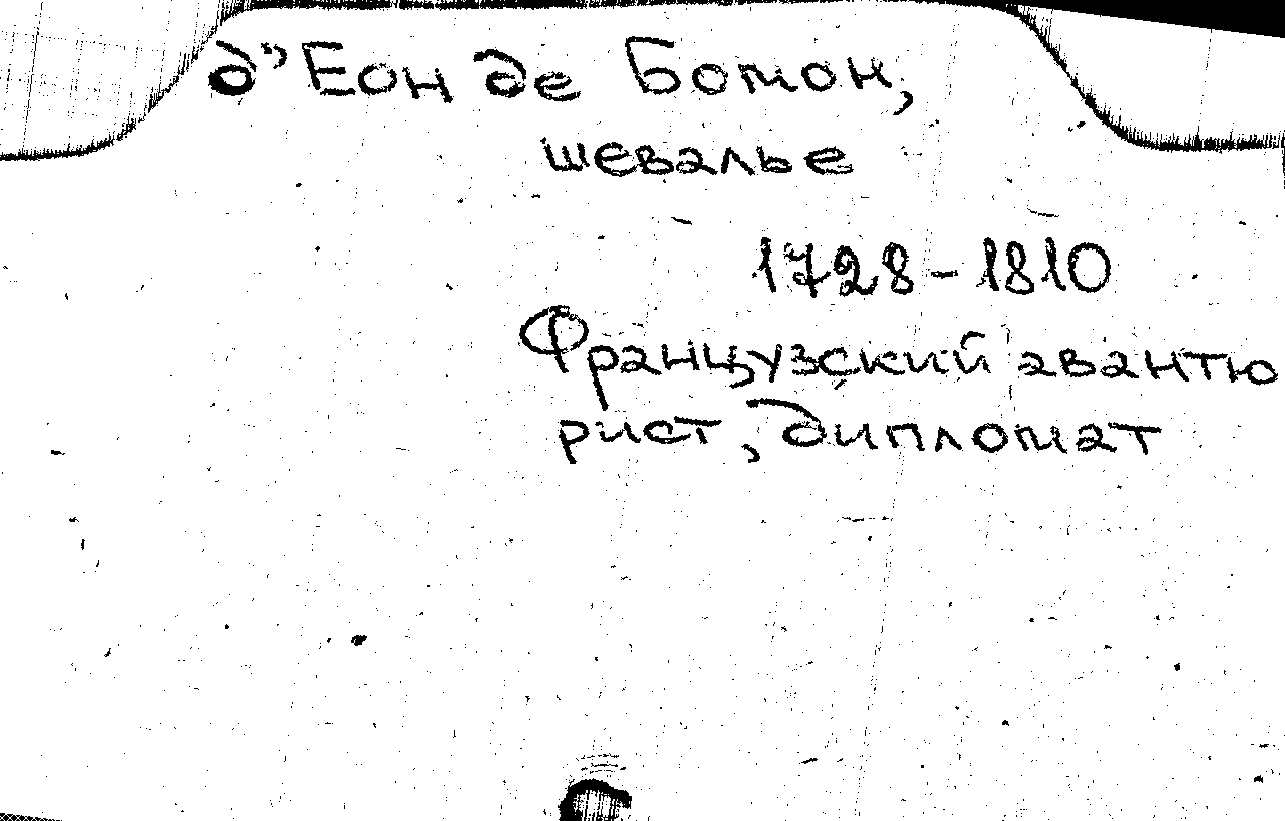 д"Еон де Бомон,
шевалье
1728-1810
Французский авантю
рист, дипломат